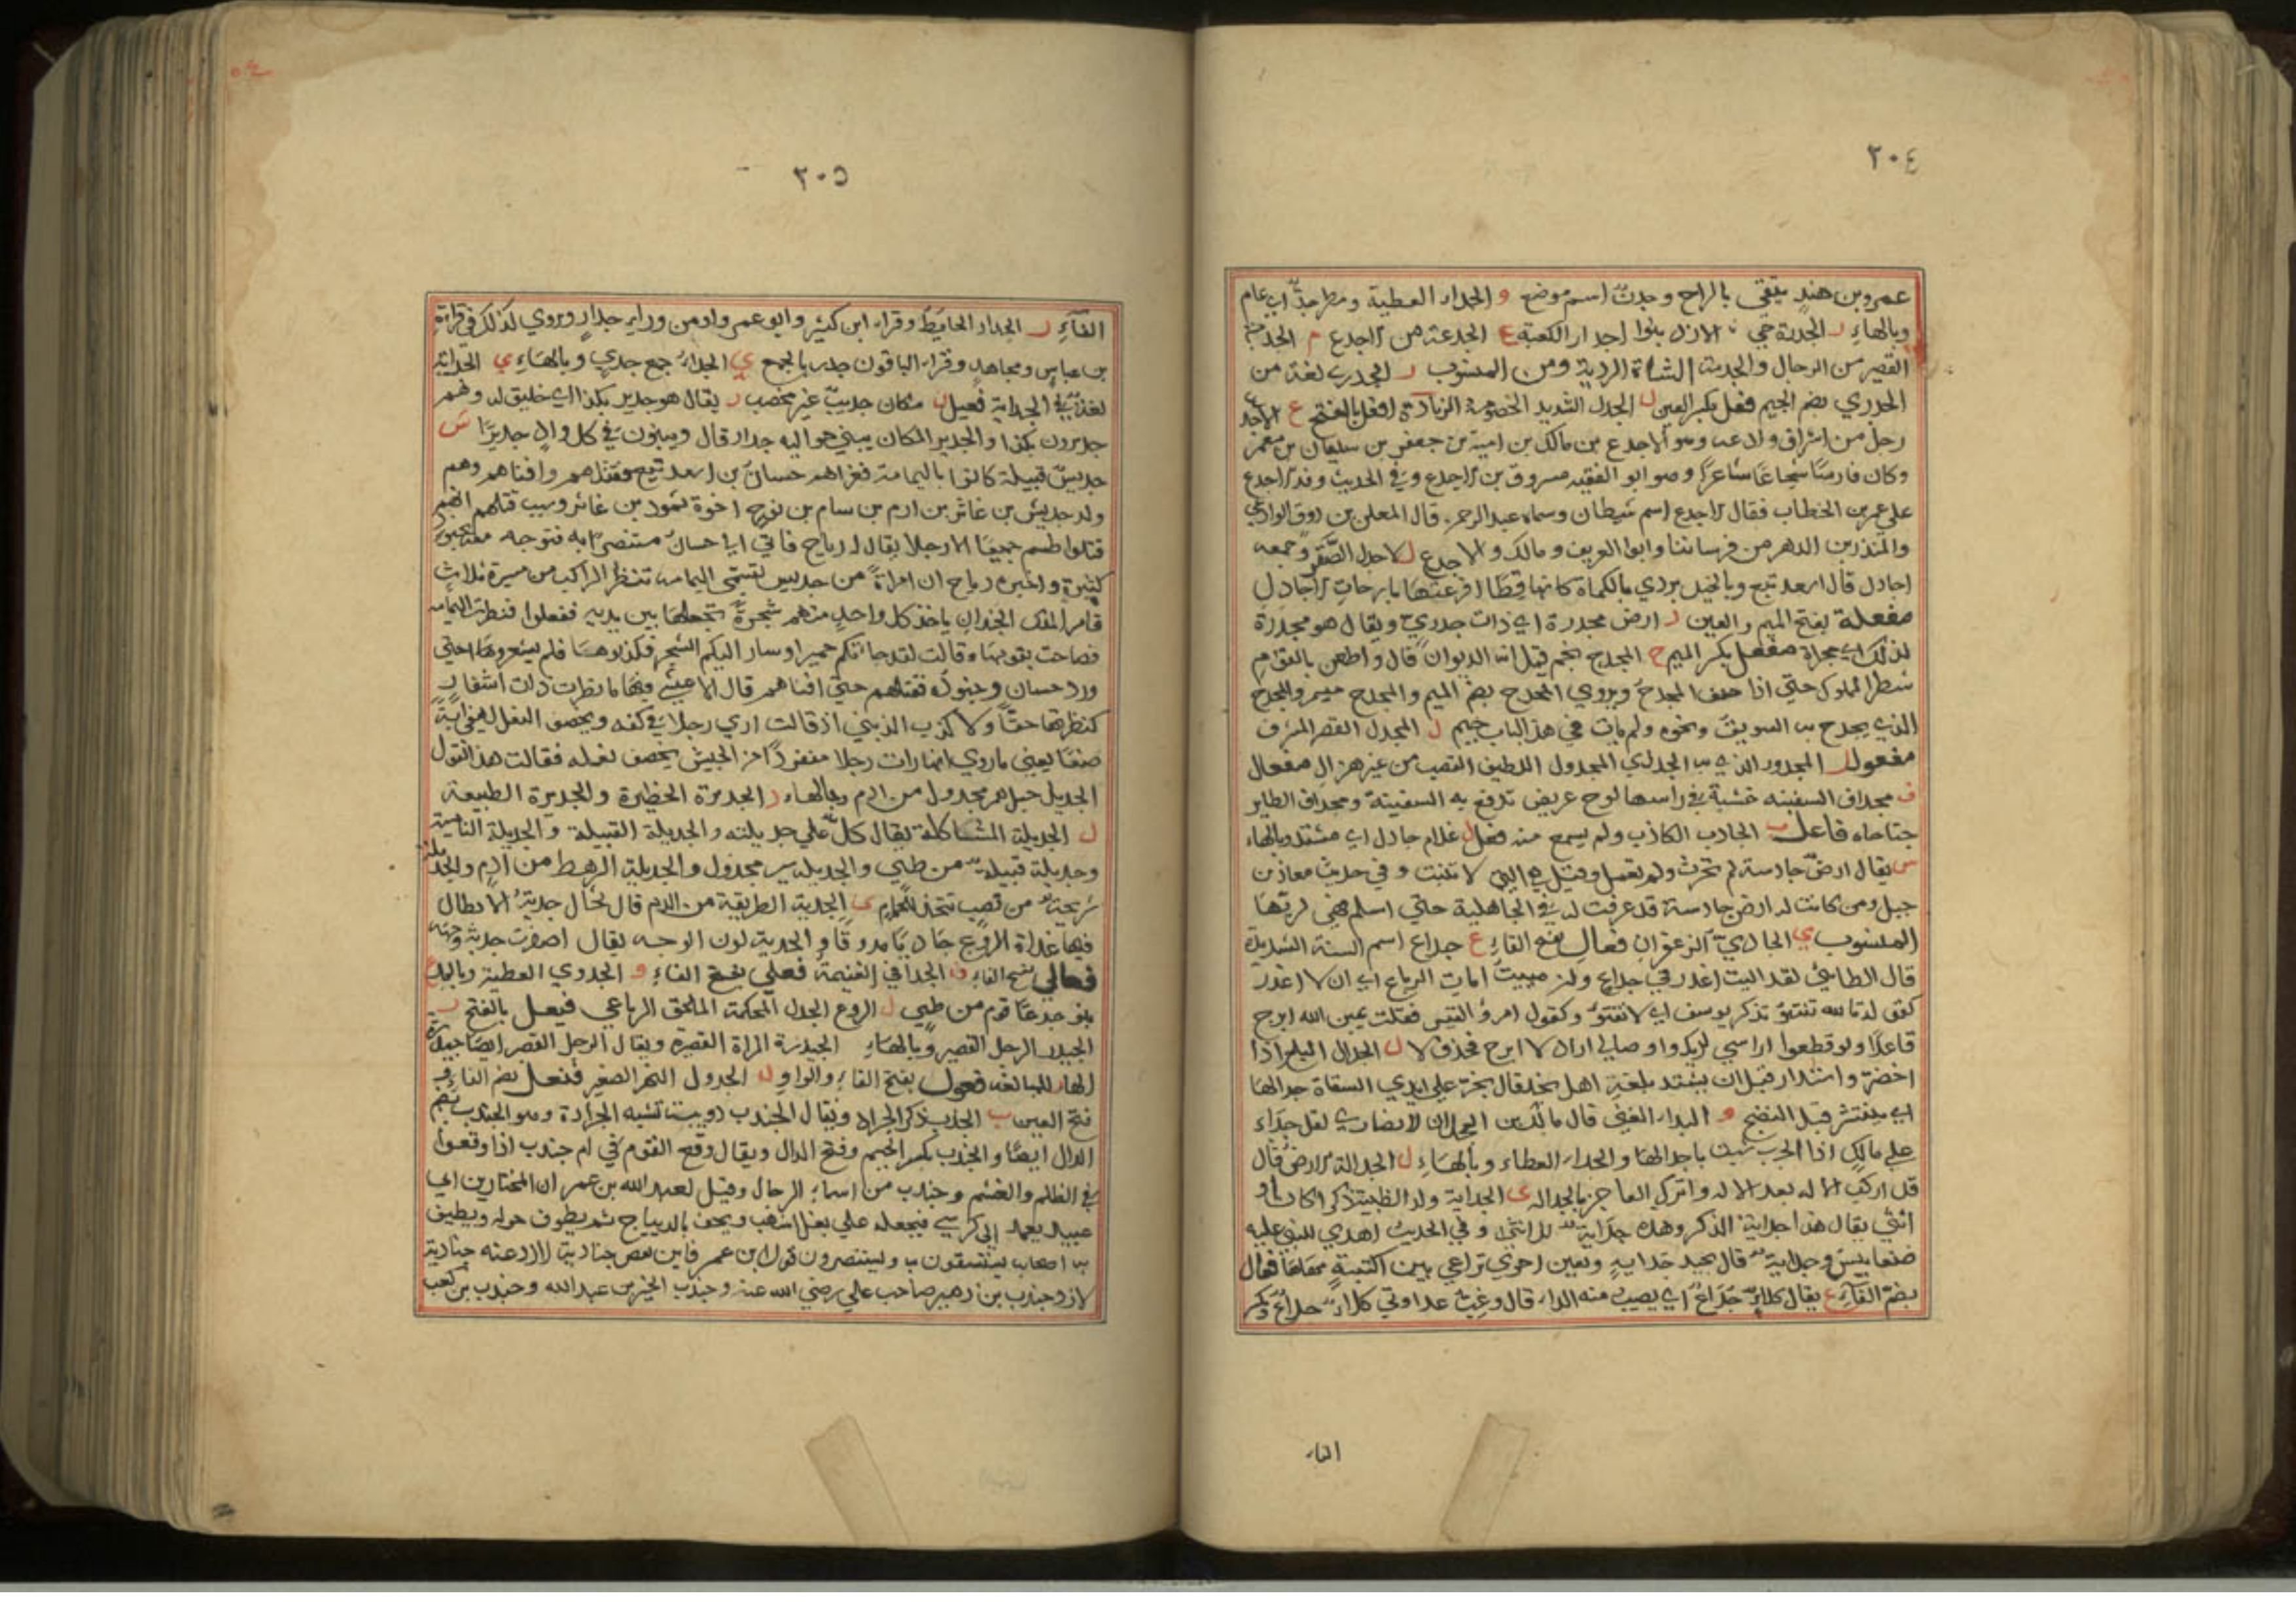 ٣٠٤
عمرو بن هند يتقي بالراح وجدن اسم موضع و الجداء العطية ومطر جدًا اي عام
وبالهاء ر الجدرة حي من الازد بنوا جدار الكعبة ع الجدعة من الاجدع م الجدمة
القصير من الرجال والجدمة الشاة الردية ومن المنسوب ر الجدري لغة من
الجدري بضم الجيم فعل بكسر العين ل الجدل الشديد الخصومة الزيادة افعل بالفتح ع الاجدع
رجل من اشراف وادعه وهو الاجدع بن مالك بن امية بن جعفر بن سليمان بن معمر
وكان فارسًا شجاعًا شاعرًا وهو ابو الفقيه مسروق بن الاجدع وفي الحديث وفد الاجدع
على عمر بن الخطاب فقال الاجدع اسم شيطان وسماه عبد الرحمن قال المعلى بن روق الوادعي
والمنذر بن الدهر من فرساننا وابوا العريف ومالك والاجدع ل الاجدل الصقر وجمعه
اجادل قال اسعد تبع وبالخيل بردي بالكماة كانها قطا افزعتها بارحات الاجادل
مفعلة بفتح الميم والعين ر ارض مجدرة اي ذات جدري ويقال هو مجدرة
لذلك اي محراة مفعل بكسر الميم ح المجدح نجم قيل انه الدبران قال واطعن بالقوم
شطر الملوك حتى اذا خفق المجدح ويروي المجدح بضم الميم والمجدح ميسم والمجدح
الذي يجدح به السويق ونحوه ولم يات في هذا الباب جيم ل المجدل القصر المشرف
مفعول ر المجدور الذي به الجدري المجدول اللطيف القصب من غير هزال مفعال
ف مجداف السفينه خشبة في راسها لوح عريض تدفع به السفينة ومجداف الطاير
جناحاه فاعل ب الجادب الكاذب ولم يسمع منه فعل ل غلام جادل اي مشتد وبالهاء
س يقال ارض جادسة لم تحرث ولم تعمل وقيل هي التي لا تنبت وفي حديث معاذ بن
جبل ومن كانت له ارض جادسة قد عرفت له في الجاهلية حتى اسلم فهي لربها
المنسوب ي الجادي الزعفران فعال بفتح الفاء ع جداع اسم السنة الشديدة
قال الطائي لقد اليت اغدر في جداع ولن منيت امات الرباع اي ان لا اغدر
كقوله تالله تفتؤ تذكر يوسف اي لا تفتؤ وكقول امرؤ القيس فقلت يمين الله ابرح
قاعدًا ولو قطعوا راسي لديك واوصالي اراد لا ابرح فحذف لا ل الجدال البلح اذا
اخضر واستدار قبل ان يشتد بلغة اهل نجد قال يخر على ايدي السقاة جدالها
اي ينتثر قبل النضج و الجداء الغنى قال مالك بن العجلان الانصاري لقل جداء
على مالك اذا الحرب شبت باجذالها والجداء العطاء وبالهاء ل الجدالة الارض قال
قد اركب الالة بعد الاله واترك العاجز بالجداله ي الجداية ولد الظبية ذكرا كان او
انثى يقال هذا جداية الذكر وهذه جداية للانثى وفي الحديث اهدي للنبي عليه
ضغابيس وجداية قال بجيد جداية وبعين احوي تراعي بين اكثبة مهاها فعال
بضم الفاء ع يقال كلاءٌ جُداعٌ اي يصيب منه الداء قال وغب عداوتي كلاءٌ جداعٌ وبكسر
الفاء
٣٠٥
الفاءِ ر الجدار الحايط وقراء ابن كثير وابو عمرو او من وراء جدارٍ ويروي كذلك في قراءة
بن عباس ومجاهد وقراء الباقون جدر بالجمع ي الجداء جمع جدي وبالهاء ي الجداية
لغة في الجداية فعيل ب مكان جديب غير مخصب ر يقال هو جدير بكذا اي خليق له وهم
جديرون بكذا والجدير المكان يبنى حواليه جدار قال ويبنون في كل واد جديرًا س
جديس قبيلة كانوا باليمامة فغزاهم حسان بن اسعد تبع فقتلهم وافناهم وهم
ولد جديس بن غاثر بن ارم بن سام بن نوح اخوة ثمود بن غاثر وسبب قتلهم انهم
قتلوا طسم جميعًا الا رجلا يقال له رياح فاتى ايا حسان مستنصرًا به فتوجه معه بجيوش
كثيرة واخبره رياح ان امراةً من جديس تسمى اليمامه تنظر الراكب من مسيرة ثلاث
فامر الملك الجند ان ياخذ كل واحد منهم شجرةً تجعلها بين يديه ففعلوا فنظرت اليمامه
فصاحت بقومها وقالت لقد جاتكم حمير او سار اليكم الشجر فكذبوها فلم يشعروا حتى
ورد حسان وجنوده فقتلهم حتى افناهم قال الاعشى وفيها ما نظرت ذات اشفار
كنظرتها حقًّا ولا كذب الذيني اذ قالت ارى رجلا في كفه ويخصف النعل لهفي اية
صنعًا يعني ما روي انها رات رجلا منفردًا من الجيش يخصف نعله فقالت هذا القول
الجديل حبل مجدول من ادم وبالهاء ر الجديرة الحظيرة والجديرة الطبيعة
ل الجديلة المشاكلة يقال كل على جديلته والجديلة القبيلة والجديلة الناحية
وجديلة قبيلة من طيي والجديله سير مجدول والجديلة الرهط من ادم والجديلة
شريحة من قصب تتخذ للحمام ي الجدية الطريقة من الدم قال تخال جدية الابطال
فيها غداة الروع جاديًا مدوقًا والجدية لون الوجه يقال اصفرت جدية وجهه
فعالى بفتح الفاء ف الجدافي الغنيمة فعلى بفتح الفاء و الجدوي العطية وبالمد ع
بنو جدعا قوم من طيي ل الروع الجدل المحكمة الملحق الرباعي فيعل بالفتح ر
الجيدر الرجل القصير وبالهاءِ الجيدرة المراة القصيرة ويقال الرجل القصير ايضا جيدرة
الهاء للمبالغه فعول بفتح الفاء والواو ل الجدول النهر الصغير فنعل بضم الفاء و
فتح العين ب الجندب ذكر الجراد ويقال الجندب دويبة تشبه الجرادة وهو الجندب بضم
الدال ايضًا والجندب بكسر الجيم وفتح الدال ويقال وقع القوم في ام جندب اذا وقعوا
في الظلم والغشم وجندب من اسماء الرجال وقيل لعبد الله بن عمر ان المختار بن ابي
عبيد يعمد الى كرسي فيجعله على بغل اشهب ويحف بالديباج ثم يطوف حوله ويطيف
به اصحابه يستسقون به ويستنصرون فقال ابن عمر فاين بعض جنادبة الازد عنه جنادبة
الازد جندب بن زهير صاحب علي رضي الله عنه وجندب الخير بن عبد الله وجندب بن كعب